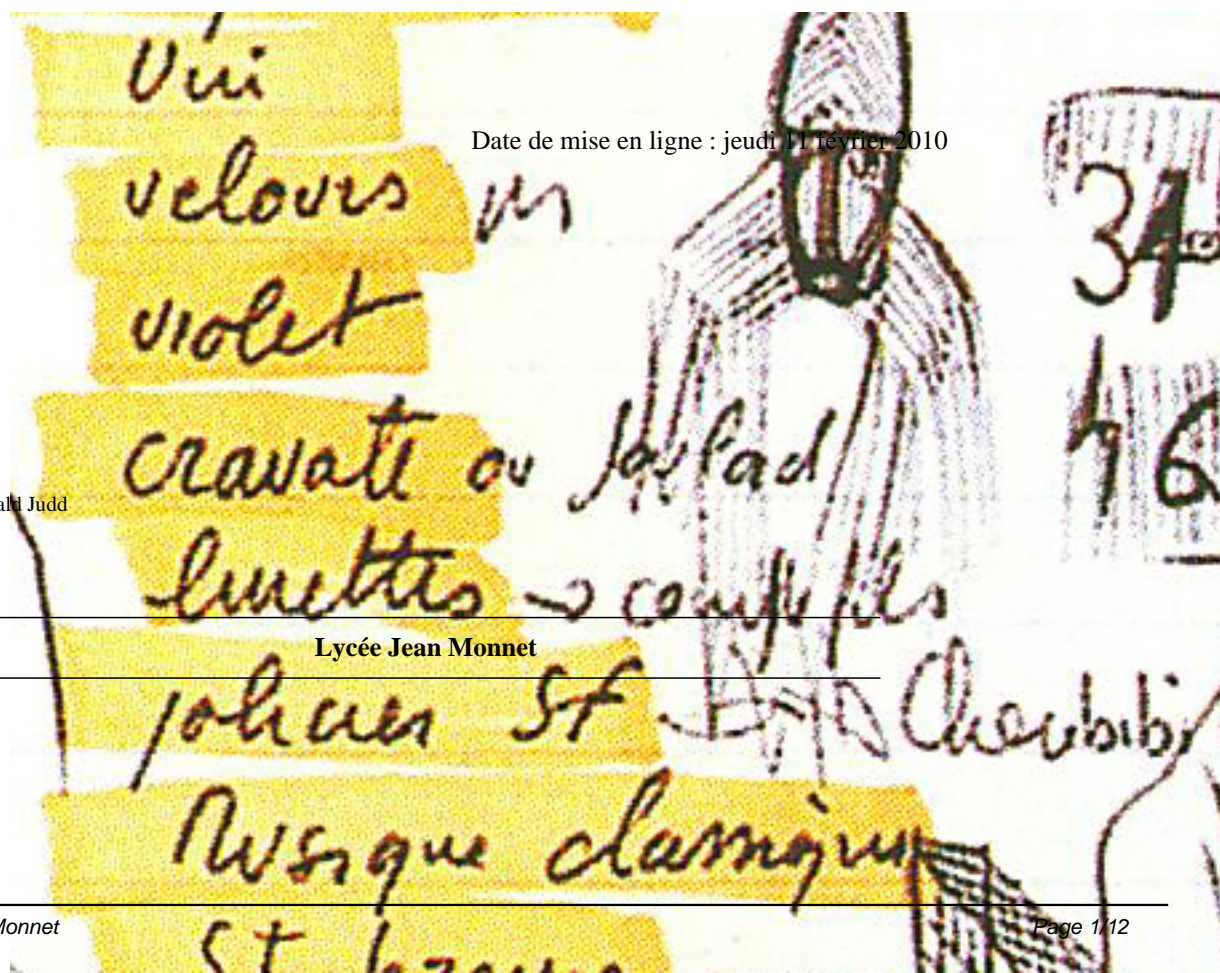 Date de mise en ligne : jeudi 11 février 2010
velours
violet
31
cravate ou
46
ald Judd
lunettes →
Lycée Jean Monnet
policier St
Musique classique
St
Monnet
Page 1/12